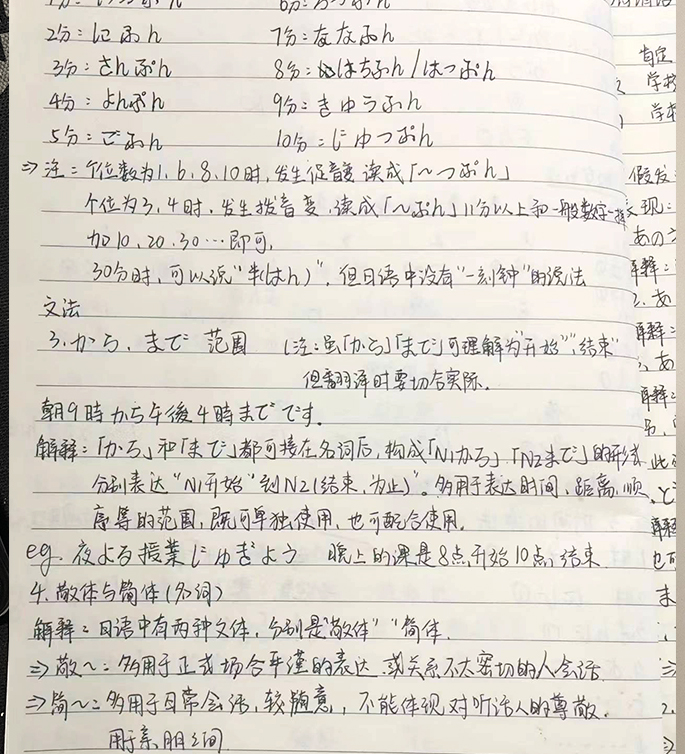 2分：にふん　7分：ななふん
3分：さんぷん　8分：はちふん/はっぷん
4分：よんぷん　9分：きゅうふん
5分：ごふん　10分：じゅっぷん
⇒注：个位数为1,6,8,10时,发生促音变 读成「～っぷん」
个位为3,4时,发生拨音变,读成「～ぷん」11分以上和一般数字一样
加10,20,30…即可.
30分时,可以说"半(はん)",但日语中没有"一刻钟"的说法
文法
3.から、まで 范围 (注:虽「から」「まで」可理解为"开始","结束"
但翻译时要切合实际.
朝9時から午後4時までです.
解释:「から」和「まで」都可接在名词后,构成「N1から」「N2まで」的形式
分别表达"N1开始"到N2(结束,为止)".多用于表达时间,距离,顺
序等的范围,既可单独使用,也可配合使用.
eg.夜よる授業じゅぎょう 晚上的课是8点开始10点结束
4.敬体与简体(名词)
解释:日语中有两种文体,分别是"敬体""简体.
⇒敬～:多用于正式场合严谨的表达 或关系不太密切的人会话.
⇒简～:多用于日常会话,较随意,不能体现对听话人的尊敬.
用于亲,朋之间
肯定
学校
学校
假发:
表现:
あの
解释:
2.あ
解释:
あ
解释:
此
と
解释
也可
ま
2.